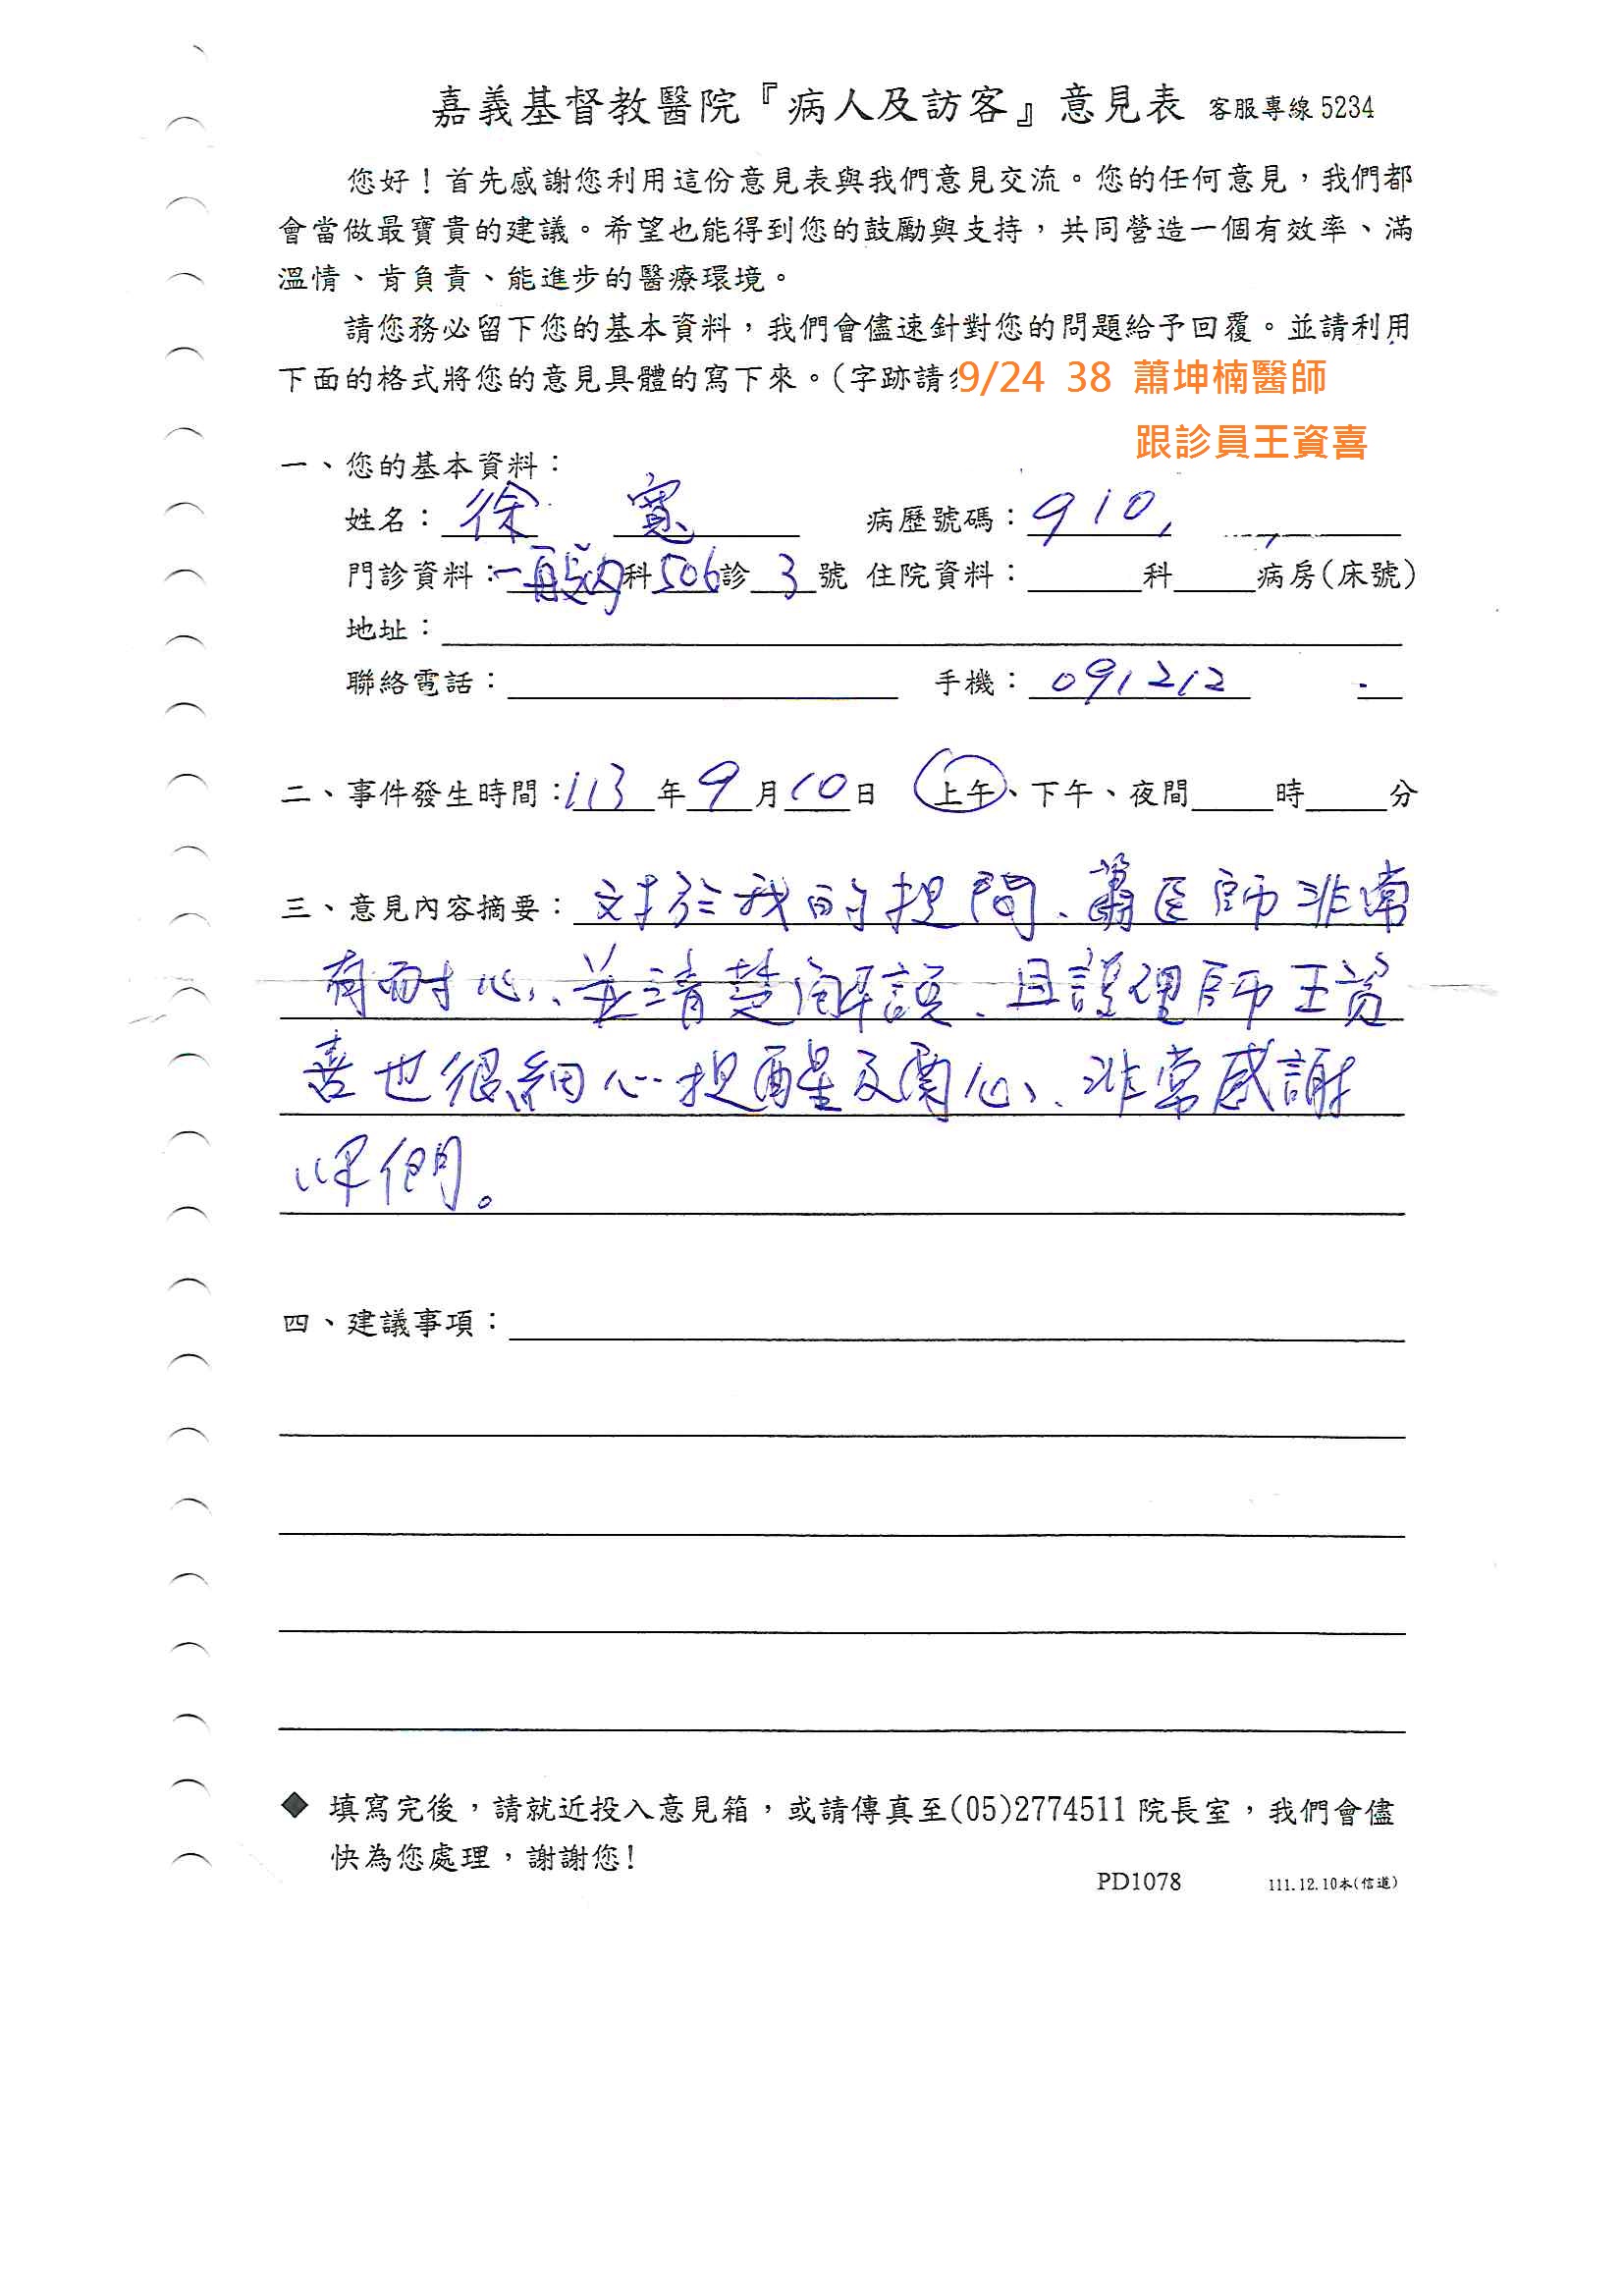 嘉義基督教醫院『病人及訪客』意見表 客服專線 5234
您好！首先感謝您利用這份意見表與我們意見交流。您的任何意見，我們都
會當做最寶貴的建議。希望也能得到您的鼓勵與支持，共同營造一個有效率、滿
溫情、肯負責、能進步的醫療環境。
請您務必留下您的基本資料，我們會儘速針對您的問題給予回覆。並請利用
下面的格式將您的意見具體的寫下來。(字跡請 9/24 38 蕭坤楠醫師
跟診員王資喜
一、您的基本資料：
姓名：徐 寬 病歷號碼：910
門診資料：一般內科 506 診 3 號 住院資料： 科 病房(床號)
地址：
聯絡電話： 手機：091212
二、事件發生時間：113 年 9 月 10 日 上午、下午、夜間 時 分
三、意見內容摘要：对於我的提問、蕭医師非常
有耐心、並清楚解說、且護理師王資
喜也很細心提醒及關心、非常感謝
你們。
四、建議事項：
◆ 填寫完後，請就近投入意見箱，或請傳真至(05)2774511 院長室，我們會儘
快為您處理，謝謝您！
PD1078 111.12.10本(信道)